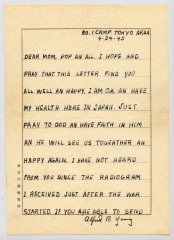 NO. 1 CAMP. TOKYO AREA
4-24-43
DEAR MOM, POP AN ALL. I HOPE AND
PRAY THAT THIS LETTER FIND YOU
ALL WELL AN HAPPY. I AM O.K. AN HAVE
MY HEALTH HERE IN JAPAN. JUST
PRAY TO GOD AN HAVE FAITH IN HIM
AN HE WILL SEE US TOGEATHER AN
HAPPY AGAIN. I HAVE NOT HEARD
FROM YOU SINCE THE RADIOGRAM
I RECEIVED JUST AFTER THE WAR
STARTED. IF YOU ARE ABLE TO SEND
Alfred R. Young